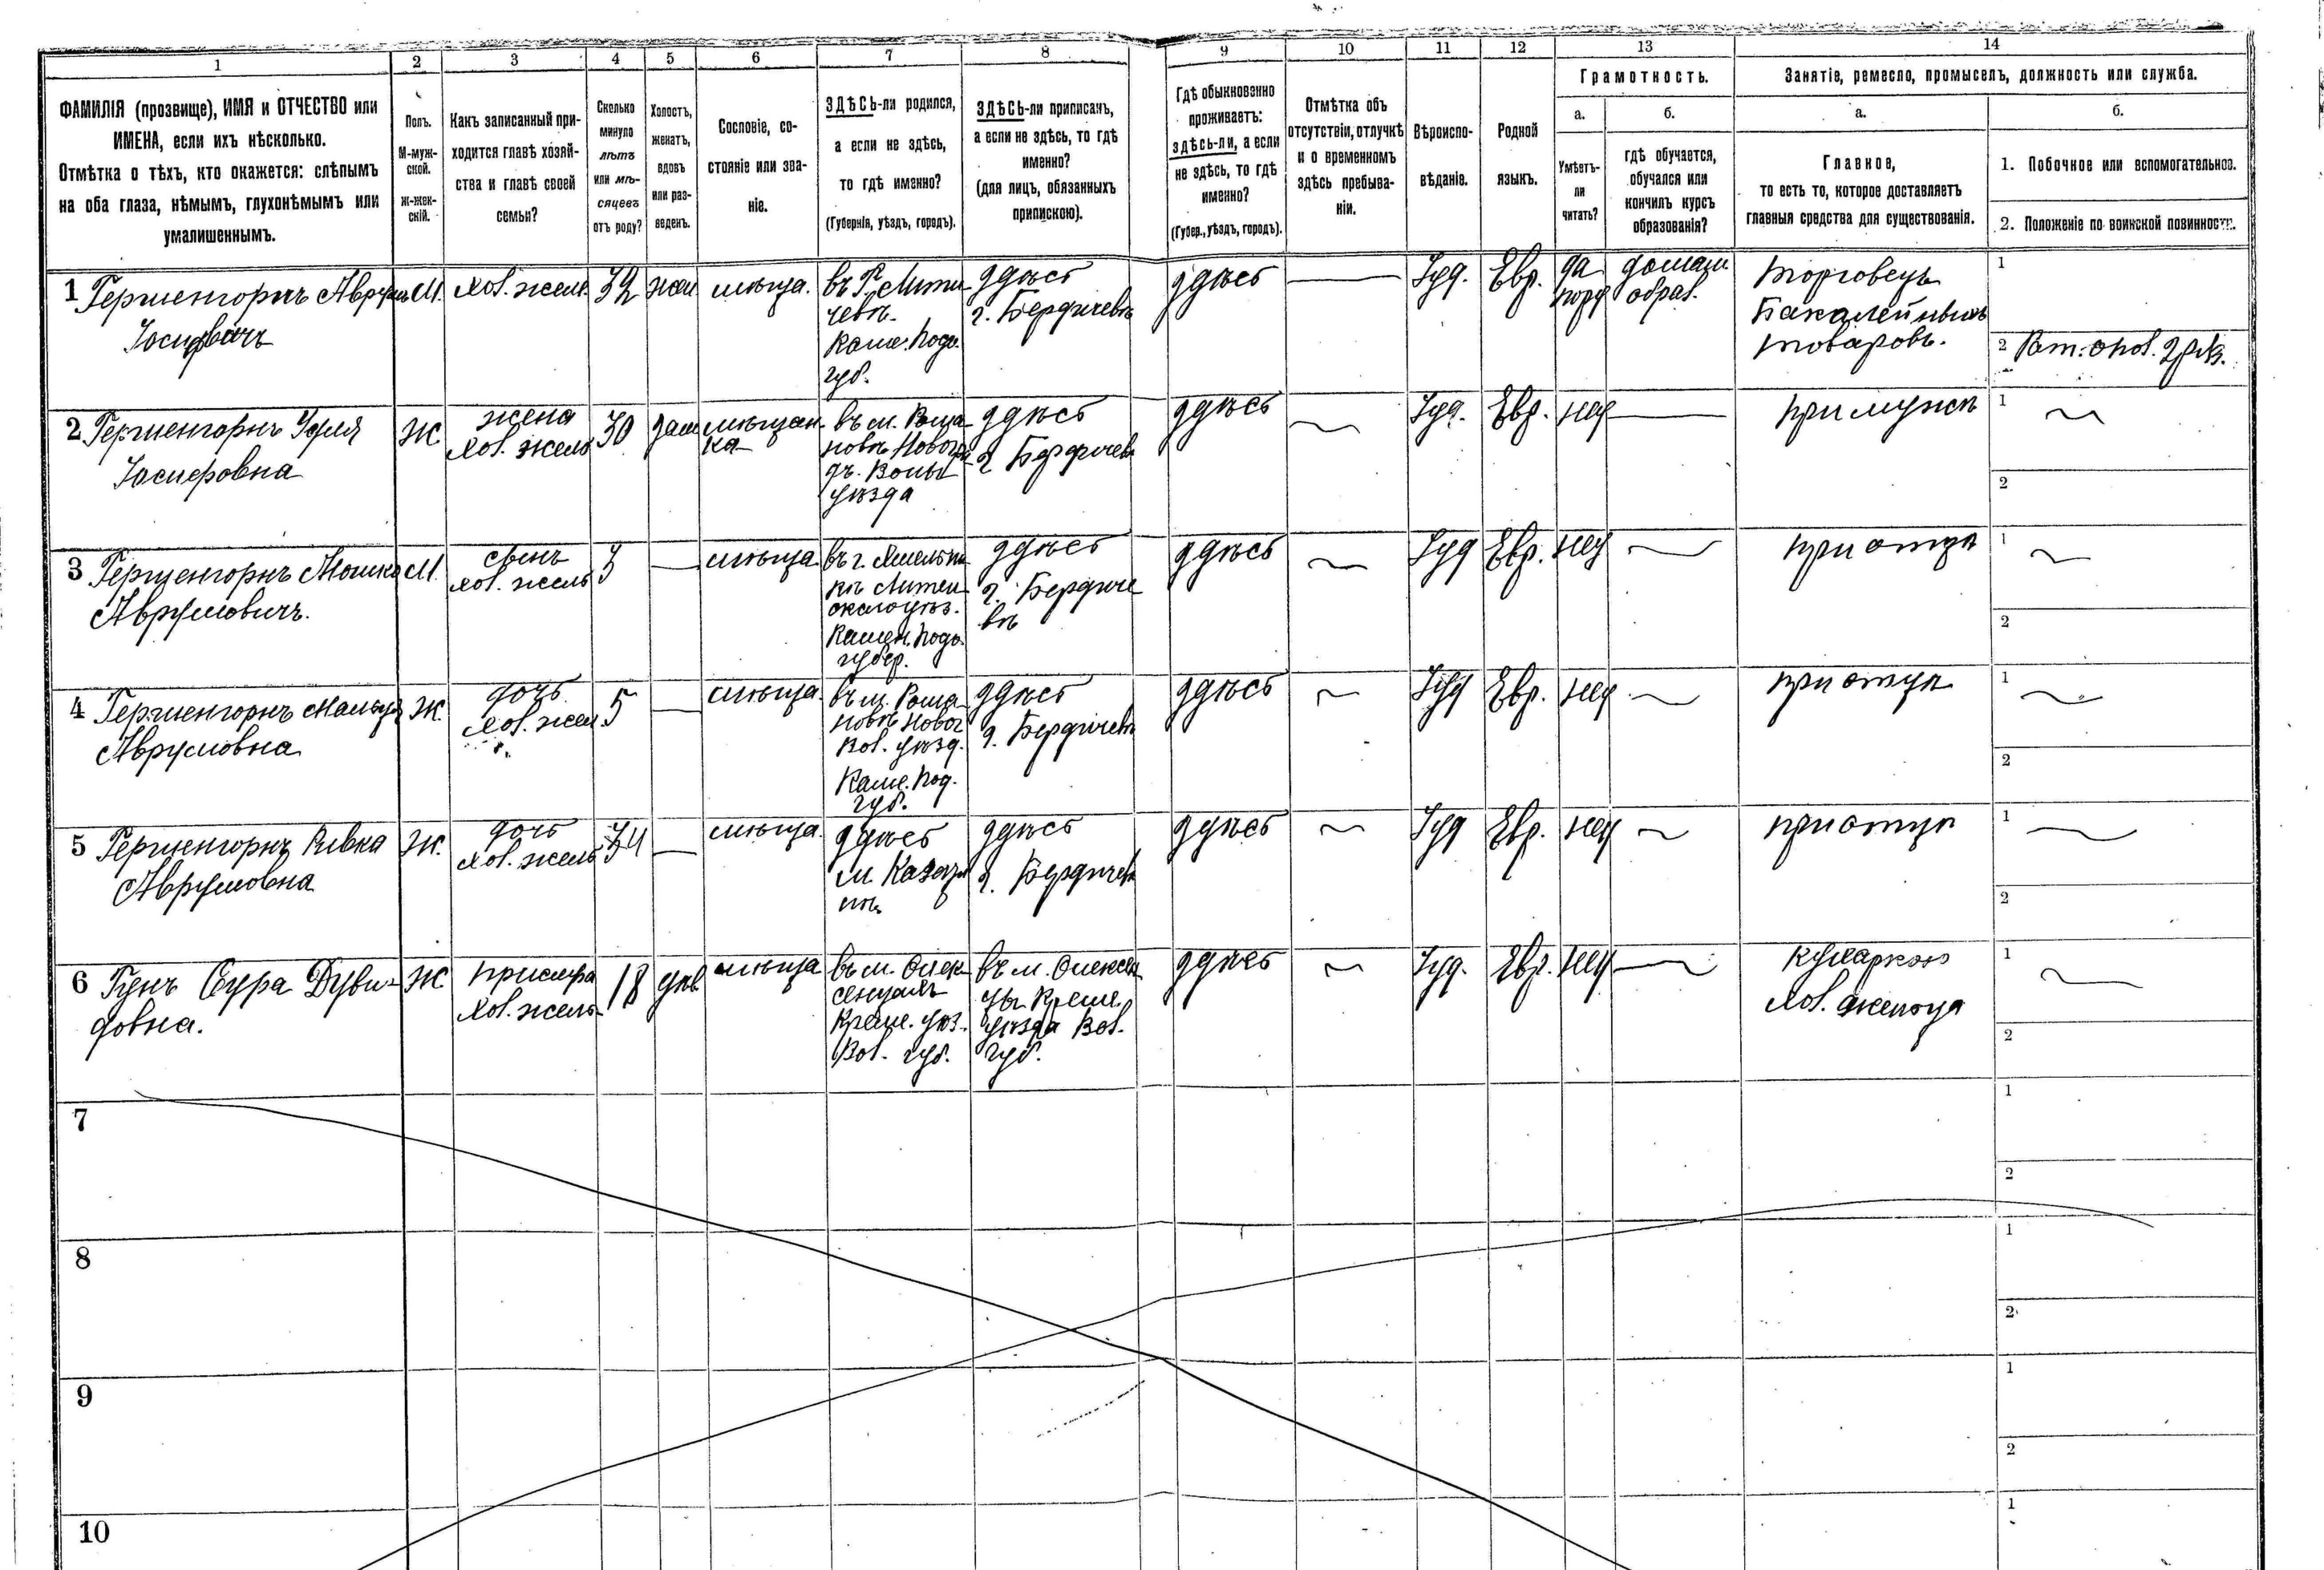 1 2 3 4 5 6 7 8 9 10 11 12 13 14
ФАМИЛІЯ (прозвище), ИМЯ и ОТЧЕСТВО или
ИМЕНА, если ихъ нѣсколько.
Отмѣтка о тѣхъ, кто окажется: слѣпымъ
на оба глаза, нѣмымъ, глухонѣмымъ или
умалишеннымъ.
Полъ.
М-муж-
ской.
Ж-жен-
скій.
Какъ записанный при-
ходится главѣ хозяй-
ства и главѣ своей
семьи?
Сколько
минуло
лѣтъ
или мѣ-
сяцевъ
отъ роду?
Холостъ,
женатъ,
вдовъ
или раз-
веденъ.
Сословіе, со-
стояніе или зва-
ніе.
ЗДѢСЬ-ли родился,
а если не здѣсь,
то гдѣ именно?
(Губернія, уѣздъ, городъ).
ЗДѢСЬ-ли приписанъ,
а если не здѣсь, то гдѣ
именно?
(для лицъ, обязанныхъ
припискою).
Гдѣ обыкновенно
проживаетъ:
здѣсь-ли, а если
не здѣсь, то гдѣ
именно?
(Губер., уѣздъ, городъ).
Отмѣтка объ
отсутствіи, отлучкѣ
и о временномъ
здѣсь пребыва-
ніи.
Вѣроиспо-
вѣданіе.
Родной
языкъ.
Грамотность.
а.
Умѣетъ-
ли
читать?
б.
гдѣ обучается,
обучался или
кончилъ курсъ
образованія?
Занятіе, ремесло, промыселъ, должность или служба.
а.
Главное,
то есть то, которое доставляетъ
главныя средства для существованія.
б.
1. Побочное или вспомогательное.
2. Положеніе по воинской повинности.
1 Гершенгорнъ Аврумъ
Іосифовичъ
М.
хоз. жель.
32
жен
мѣща.
въ Г. Лити
чевѣ
Каме. Подо.
губ.
здѣсь
г. Бердичевѣ
здѣсь
Іуд.
Евр.
да
домаш.
образ.
торговецъ
бакалейныхъ
товаровъ.
1
2
2 Гершенгорнъ
Іосифовна
Ж
жена
хоз. жель
30
зам
мѣщан
ка
въ м. Рома
новѣ Новогра
дъ. Волы
уѣзда
здѣсь
г. Бердичевѣ
здѣсь
Іуд.
Евр.
при мужѣ
1
2
3 Гершенгорнъ Мошко
Аврумовичъ.
М.
сынъ
хоз. жель
мѣща
въ г. Хмельни
кѣ Литин
скаго уѣз.
Камен. Подо.
губер.
здѣсь
г. Бердиче
вѣ
здѣсь
Іуд
Евр.
при отцѣ
1
2
4 Гершенгорнъ Мальца
Аврумовна
Ж.
дочь
хоз. жел
5
мѣща
въ м. Рома
новѣ Новог
Вол. уѣзд.
Каме. Под.
губ.
здѣсь
г. Бердичевѣ
здѣсь
Іуд
Евр.
при отцѣ
1
2
5 Гершенгорнъ Ривка
Аврумовна
Ж.
дочь
хоз. жель
мѣща
здѣсь
м. Казати
нѣ
здѣсь
г. Бердичевѣ
здѣсь
Іуд
Евр.
при отцѣ
1
2
6 Гунъ Сура Дуви-
довна.
Ж
прислуга
хоз. жель
18
дѣв.
мѣща
въ м. Олек
Креме. уѣз.
Вол. губ.
въ м. Олексен
цы Креме.
уѣзда Вол.
губ.
здѣсь
Іуд.
Евр.
кухаркою
1
2
7
1
2
8
1
2
9
1
2
10
1